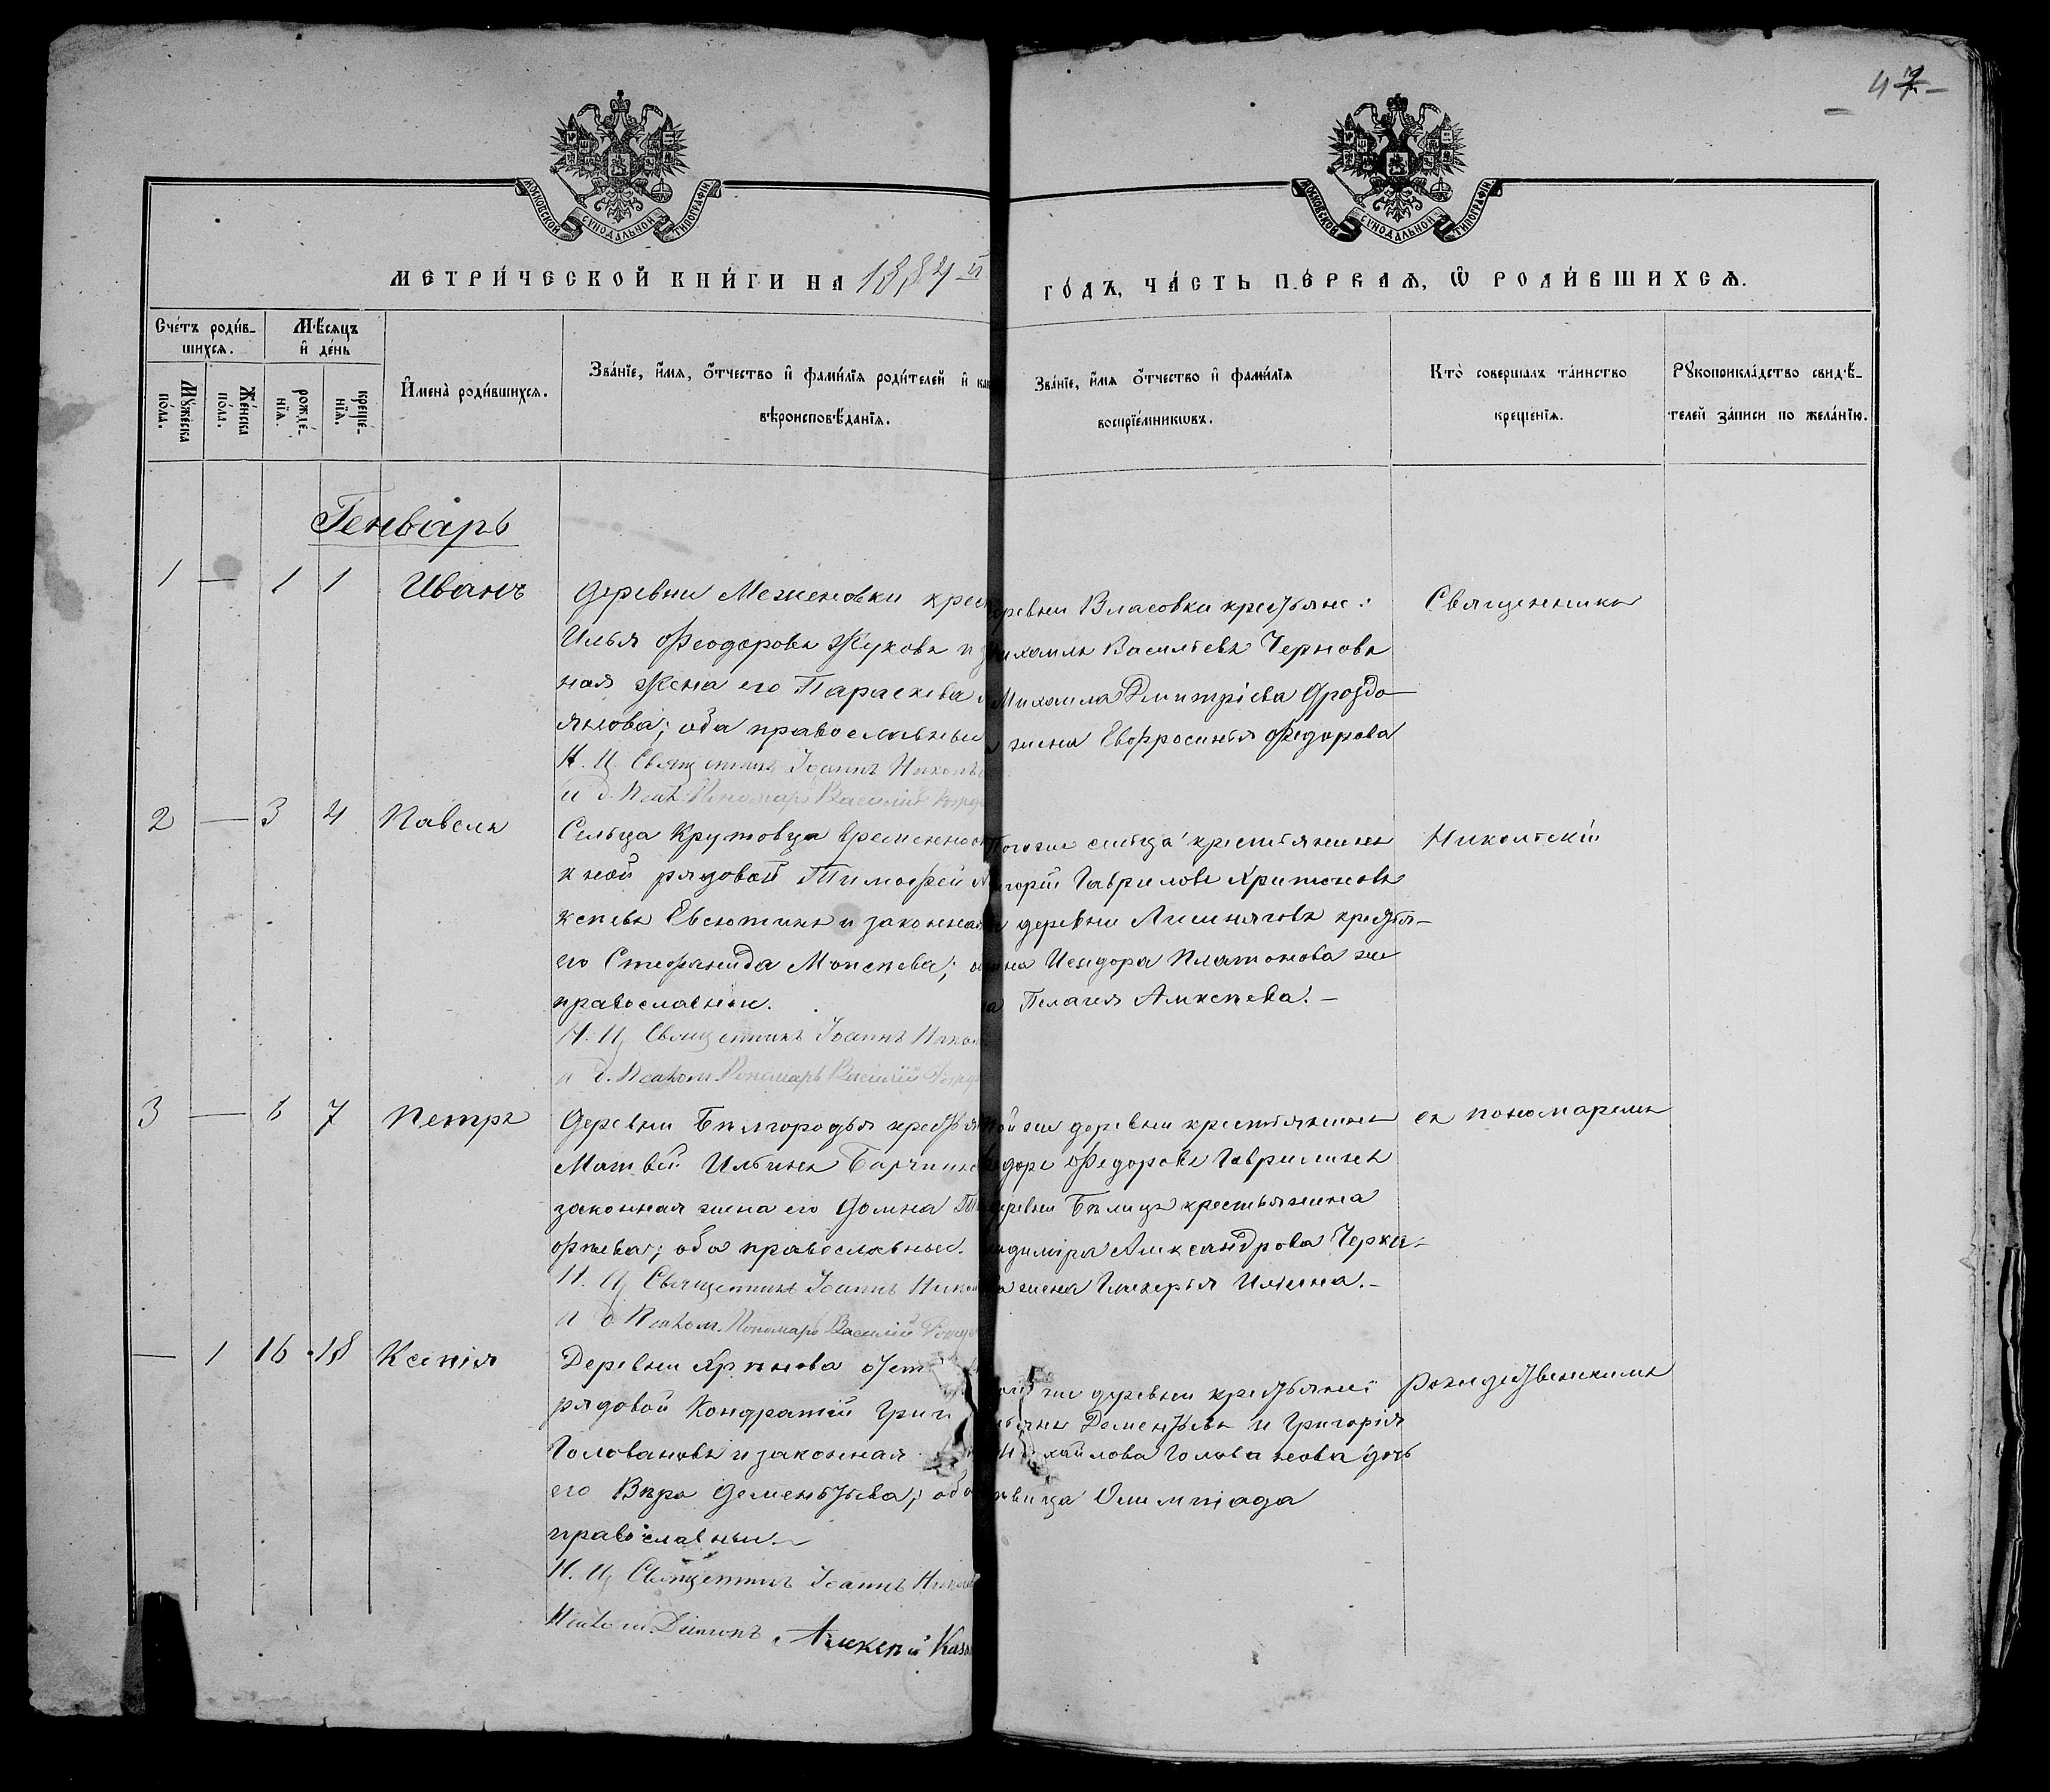 47
МОСКОВСКОЙ СУНОДАЛЬНОЙ ТИПОГРАФІИ
МОСКОВСКОЙ СУНОДАЛЬНОЙ ТИПОГРАФІИ
МЕТРИ́ЧЕСКОЙ КНИ́ГИ НА 1884 й
ГО́ДЪ, ЧА́СТЬ ПЕ́РВАѦ, Ѡ҆ РОДИ́ВШИХСѦ.
Сче́тъ роди́в-
шихсѧ.
Мѣ́сѧцъ
и҆ де́нь
Мꙋ́жеска по́ла.
Же́нска по́ла.
рожде́нїѧ.
креще́нїѧ.
И҆мена̀ роди́вшихсѧ.
Зва́нїе, и҆́мѧ, ѻ҆́тчество и҆ фами́лїѧ роди́телей и҆
вѣроисповѣ́данїѧ.
Зва́нїе, и҆́мѧ ѻ҆́тчество и҆ фами́лїѧ
воспрїе́мникѡвъ.
Кто̀ соверша́лъ та́инство
креще́нїѧ.
Рꙋкоприкла́дство свидѣ́-
телей за́писи по жела́нїю.
Генварь
1 — 1 1 Иванъ
Деревни Меженовки
Илья Феодоровъ Жуковъ и
ная жена его Параскева
янова; оба православные
И. Ц. Священникъ Іоаннъ
и д. Псал. Пономарь Василій
деревни Власовки крестьяне:
Михаилъ Васильевъ Черновъ
Михаила Дмитріева Дроздо-
жена Евфросинья Федорова
Священникъ
2 — 3 4 Павелъ
Сельца Крутовца временноот
кной рядовой Тимофей
ксѣевъ Евсютинъ и законная
его Стефанида Моисѣева;
православные.
И. Ц. Священникъ Іоаннъ
и д. Псалом. Пономарь Василій
того же сельца крестьянинъ
Григорій Гавриловъ Харитоновъ
и деревни крестья-
нина Исидора Платонова же
на Пелагея Алексѣева. —
Никольскій
3 — 6 7 Петръ
Деревни Бѣлгородья
Матвѣй Ильинъ
законная жена его Домна
офѣева; оба православные.
И. Ц. Священникъ Іоаннъ
и д. Псалом. Пономарь Василій
той же деревни крестьянинъ
Федоръ Федоровъ Гаврилинъ
деревни Бѣлицъ крестьянина
Владиміра Александрова Черка-
жена Гликерія Ильина. —
съ пономаремъ
— 1 16 18 Ксенія
Деревни отст
рядовой Кондратій Григ
Головановъ и законная
его Вѣра Дементьева; оба
православные.
И. Ц. Священникъ Іоаннъ
Псалом. Діаконъ Алексѣй
той же деревни крестьяне:
Дементьевъ и Григорія
Михайлова Голованова дочь
дѣвица Олимпіада
Рождественскимъ